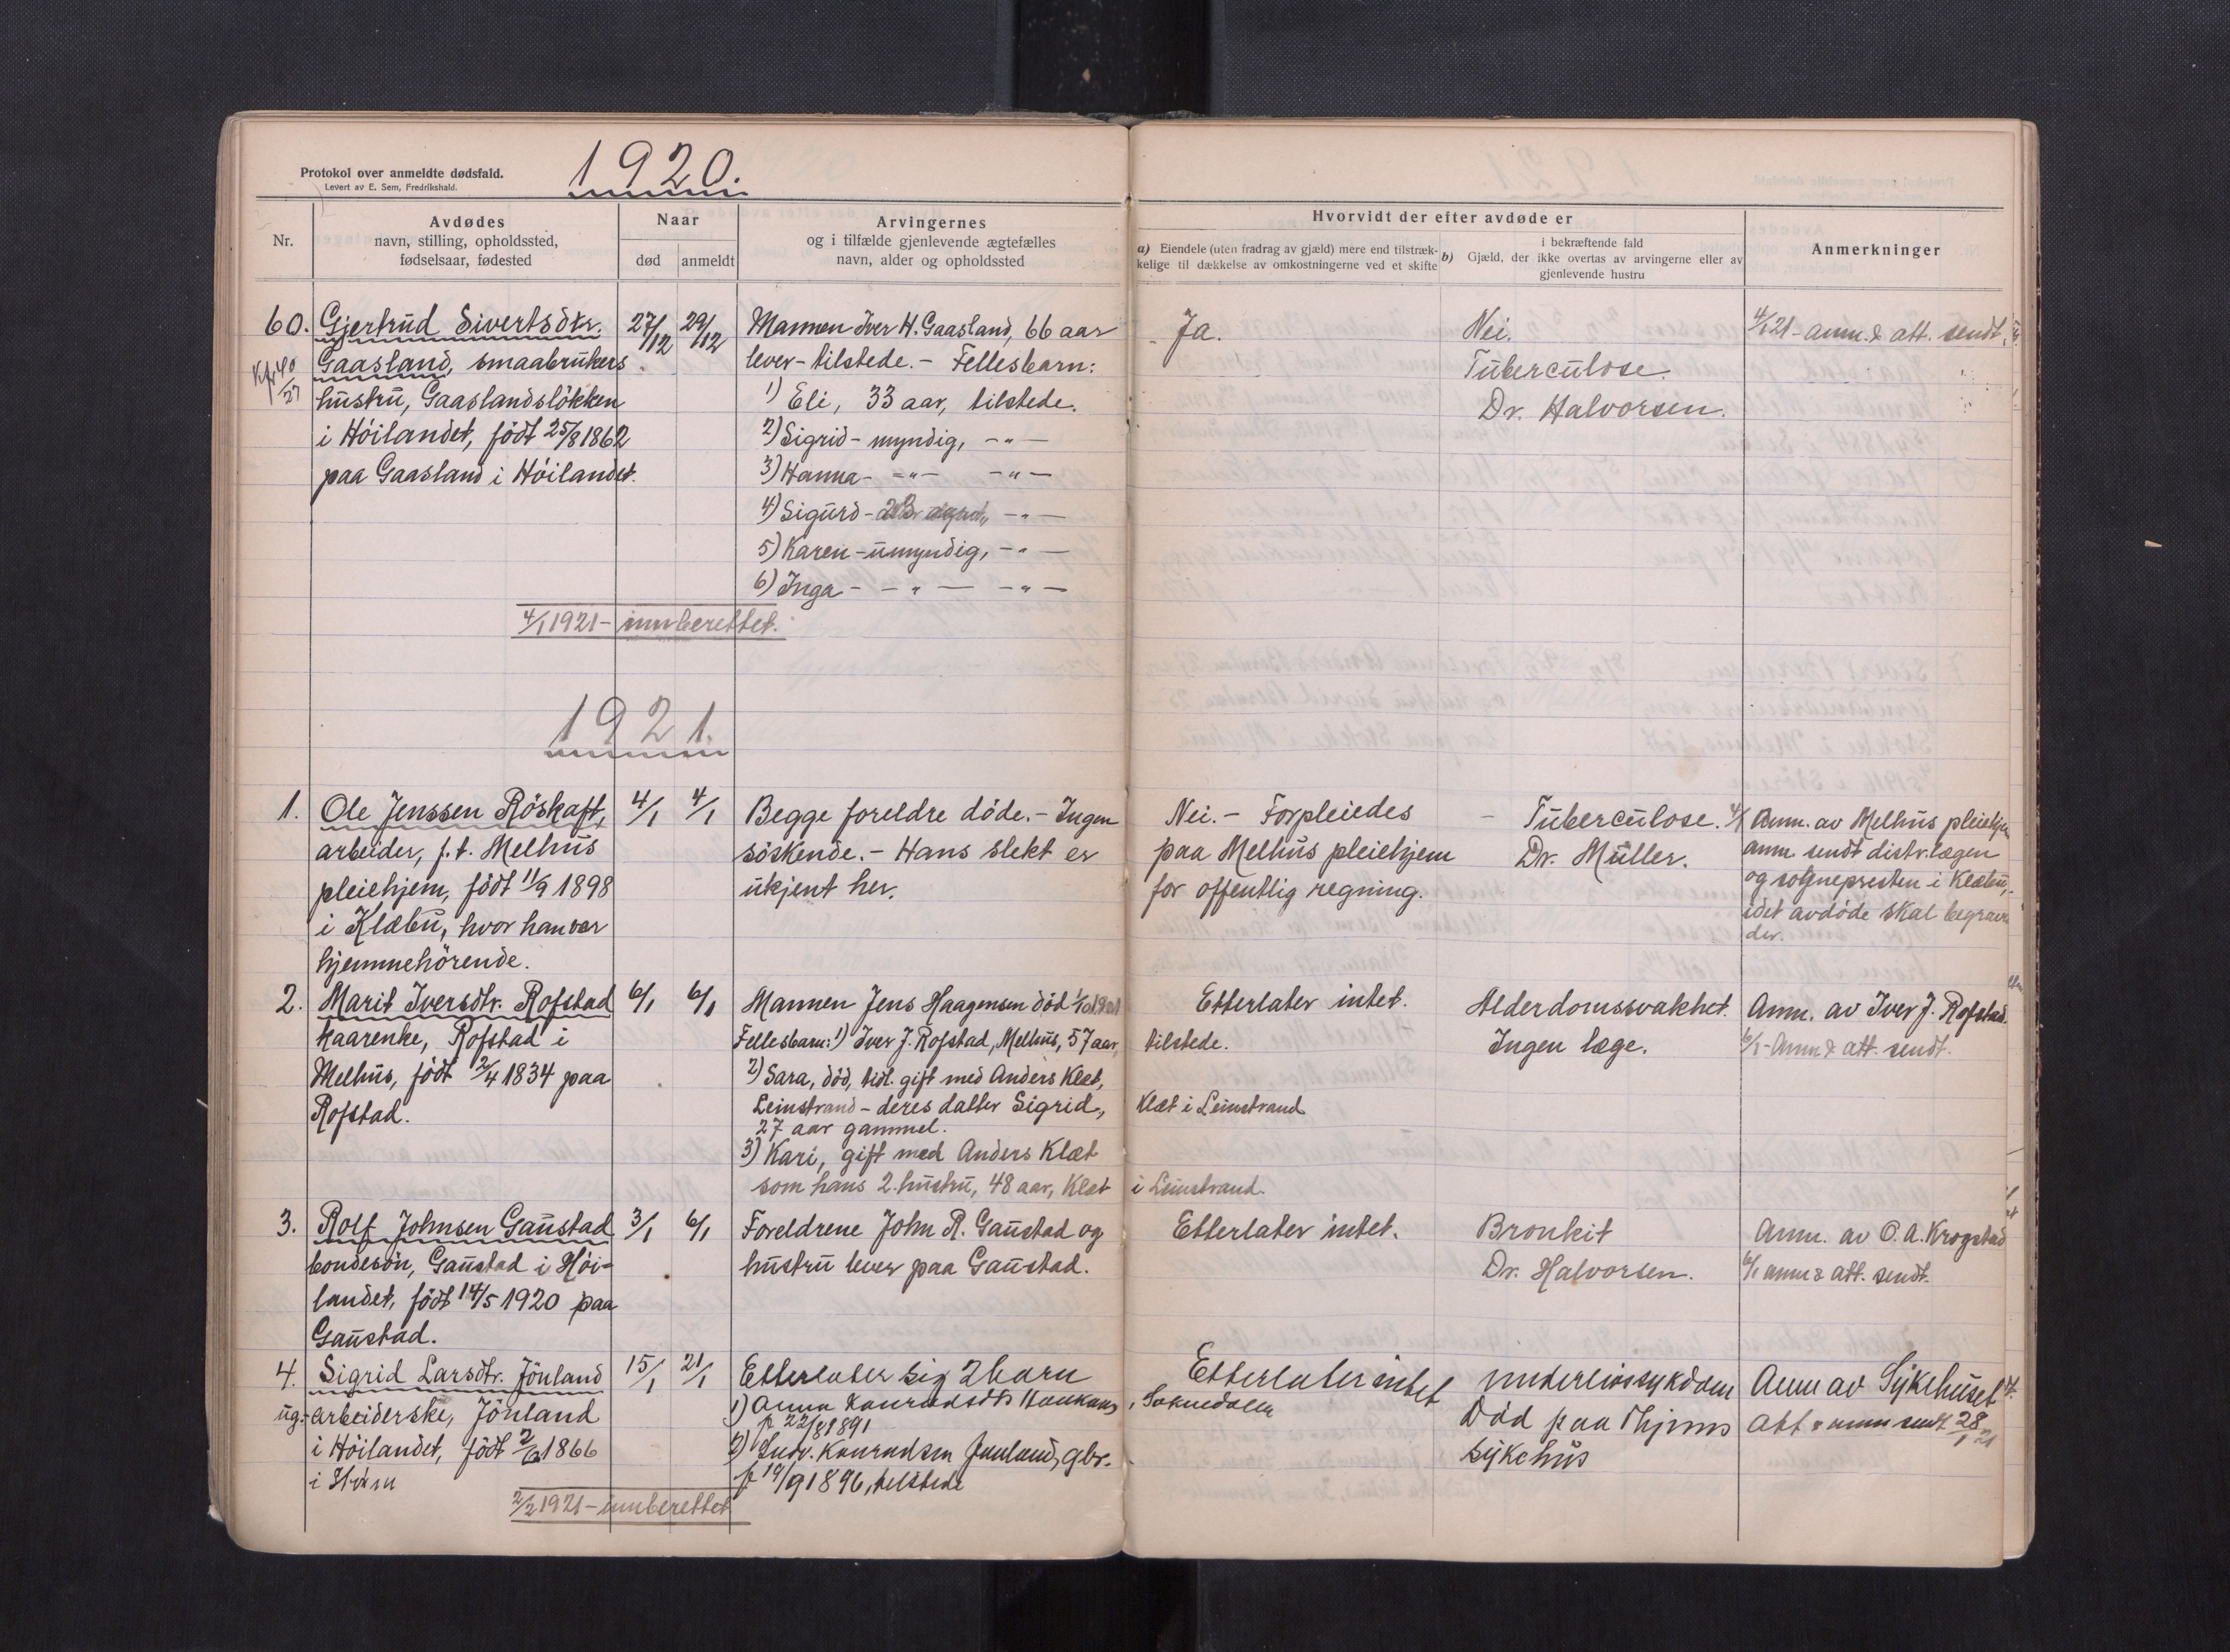 Protokol over anmeldte dødsfald.
Levert av E. Sem, Fredrikshald.
1920.
Nr.
Avdødes
navn, stilling, opholdssted,
fødselsaar, fødested
Naar
død
anmeldt
Arvingernes
og i tilfælde gjenlevende ægtefælles
navn, alder og opholdssted
Hvorvidt der efter avdøde er
a) Eiendele (uten fradrag av gjæld) mere end tilstræk-
kelige til dækkelse av omkostningerne ved et skifte
i bekræftende fald
b) Gjæld, der ikke overtas av arvingerne eller av
gjenlevende hustru
Anmerkninger
60.
Gjertrud Sivertsdtr.
Gaasland, smaabrukers
hustru, Gaaslandsløkken
i Höilandet, födt 25/8 1862
paa Gaasland i Höilandet.
27/12
29/12
Mannen Iver H. Gaasland, 66 aar
lever - tilstede. - Fellesbarn:
1) Eli, 33 aar, tilstede.
2) Sigrid - myndig, - " -
3) Hanna - = " - - " -
4) Sigurd - - " -
5) Karen - umyndig, - " -
6) Inga - - " - - " -
Ja.
Nei.
Tuberculose.
Dr. Halvorsen.
4/1 21 - anm. & att. sendt.
4/1 1921 - innberettet.
1921.
1.
Ole Jenssen Röskaft,
arbeider, f. t. Melhus
pleiehjem, födt 11/9 1898
i Klæbu, hvor han var
hjemmehörende.
4/1
4/1
Begge foreldre döde. - Ingen
söskende. - Hans slekt er
ukjent her.
Nei. - Forpleiedes
paa Melhus pleiehjem
for offentlig regning.
- Tuberculose.
Dr. Müller.
4/1 Anm. av Melhus pleiehjem
anm. sendt distr.lægen
og sognepresten i Klæbu,
idet avdöde skal begraves
der.
2.
Marit Iversdtr. Rofstad
kaarenke, Rofstad i
Melhus, födt 2/4 1834 paa
Rofstad.
6/1
6/1
Mannen Jens Haagensen död
Fellesbarn: 1) Iver J. Rofstad, Melhus, 57 aar, tilstede.
2) Sara, död, tidl. gift med Anders Klæt,
Leinstrand - deres datter Sigrid, Klæt i Leinstrand
27 aar gammel.
3) Kari, gift med Anders Klæt
som hans 2. hustru, 48 aar, Klæt i Leinstrand.
Etterlater intet.
Alderdomssvakhet.
Ingen læge.
Anm. av Iver J. Rofstad.
6/1 - Anm & att. sendt.
3.
Rolf Johnsen Gaustad
bondesön, Gaustad i Höi-
landet, födt 14/5 1920 paa
Gaustad.
3/1
6/1
Foreldrene John R. Gaustad og
hustru lever paa Gaustad.
Etterlater intet.
Bronkit
Dr. Halvorsen.
Anm. av O. A. Krogstad
6/1 anm & att. sendt.
4.
Sigrid Larsdtr. Jönland
ug. - arbeiderske, Jönland
i Höilandet, födt 2/6 1866
i Støren
15/1
21/1
Etterlater sig 2 barn
1) Anna Konradsdtr , Soknedalen
f 22/8 1891
2) Ludv. Konradsen Jonland, gbr.
f 19/9 1896, tilstede
Etterlater intet
Underlivssykdom
Död paa Thjems
sykehus
Anm av Sykehuset
att & anm sendt 28/1 21
2/2 1921 - innberettet